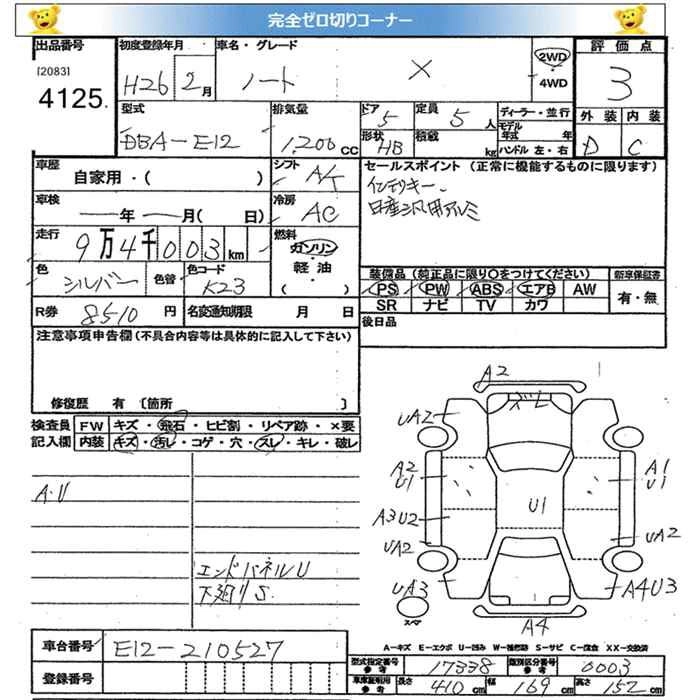 完全ゼロ切りコーナー
出品番号 初度登録年月 車名・グレード 評価点
[2083]
4125. H26 2月 ノート X 2WD・4WD 3
型式 排気量 ドア 定員 ディーラー・並行 外装 内装
DBA-E12 1200CC 5 5人 モデル年式 年
形状 HB 積載 kg ハンドル 左・右 D C
車歴 シフト セールスポイント(正常に機能するものに限ります)
自家用・( ) A/T インテリキー、
車検 冷房 日産汎用アルミ
年 月( 日) AC
走行 燃料
9万4千003km ガソリン・軽油・( )
色 色替 色コード 装備品(純正品に限り○をつけてください) 新車保証書
シルバー K23 PS PW ABS エアB AW 有・無
SR ナビ TV カワ
R券 8510円 名変通知期限 月 日 後日品
注意事項申告欄(不具合内容等は具体的に記入して下さい)
修復歴 有 〔箇所 〕
検査員 FW キズ・飛石・ヒビ割・リペア跡・×要
記入欄 内装 キズ・汚レ・コゲ・穴・スレ・キレ・破レ
A2
ズレ
UA2 UA2
A2 U1 A1 U1
A・U
U1
A3U2 UA2
UA2
エンドパネルU
下廻りS.
UA3 A4U3
スペア
A4
A=キズ E=エクボ U=凹み W=補修跡 S=サビ C=腐食 XX=交換済
車台番号 E12-210527
型式指定番号 参考 17338 類別区分番号 参考 0003
登録番号
車庫証明用 参考 長さ 410cm 幅 169cm 高さ 152cm